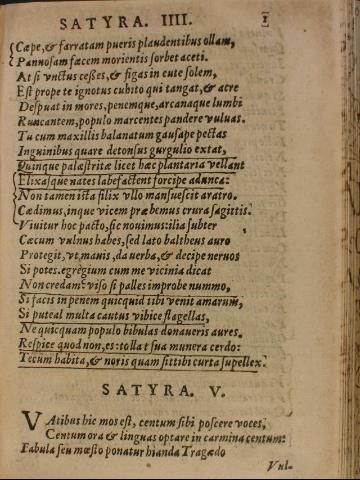 SATYRA. IIII.
Cæpe, & farratam pueris plaudentibus ollam,
Pannosam fæcem morientis sorbet aceti.
At si vnctus ceßes, & figas in cute solem,
Est prope te ignotus cubito qui tangat, & acre
Despuat in mores, penemque, arcanaque lumbi
Runcantem, populo marcentes pandere vuluas.
Tu cum maxillis balanatum gausape pectas
Inguinibus quare detonsus gurgulio extat,
Quinque palæstritæ licet hæc plantaria vellant
Elixasque nates labefactent forcipe adunca:
Non tamen ista filix vllo mansuescit aratro.
Cædimus, inque vicem præbemus crura sagittis.
Viuitur hoc pacto, sic nouimus: ilia subter
Cæcum vulnus habes, sed lato baltheus auro
Protegit, vt mauis, da verba, & decipe neruos
Si potes. egregium cum me vicinia dicat
Non credam? viso si palles improbe nummo,
Si facis in penem quicquid tibi venit amarum,
Si puteal multa cautus vibice flagellas,
Ne quicquam populo bibulas donaueris aures.
Respice quod non, es: tollat sua munera cerdo:
Tecum habita, & noris quam sit tibi curta supellex.
SATYRA. V.
VAtibus hic mos est, centum sibi poscere voces,
Centum ora & linguas optare in carmina centum:
Fabula seu mœsto ponatur hianda Tragædo
Vul-